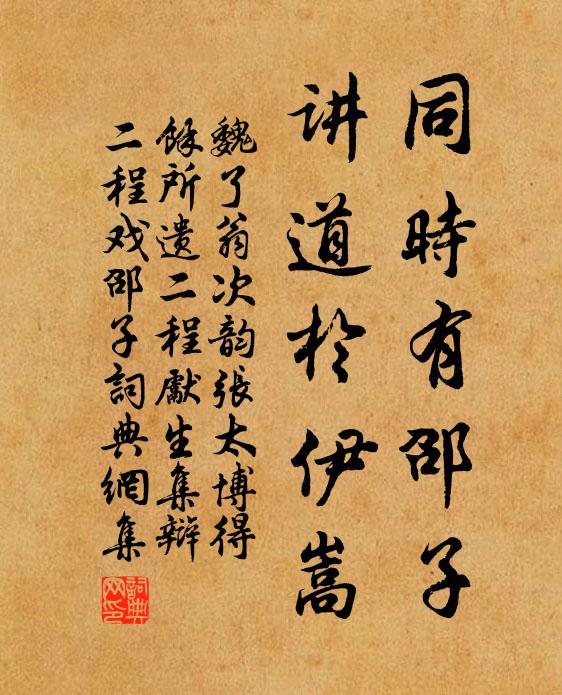 同時有邵子
讲道於伊嵩
魏了翁次韵張太博得
餘所遗二程獻生集辩
二程戏邵子詞典網集
詞典网印